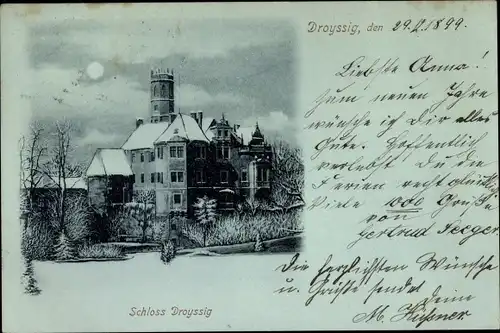 Droyssig, den 29.12.1899.
Liebste Anna!
Zum neuen Jahre
wünsche ich Dir alles
Gute. Hoffentlich
verlebst Du die
Ferien recht glückl.
Viele 1000 Grüße
von
Gertrud
Die herzlichsten Wünsche
u. Grüße sendet Deine
M.
Schloss Droyssig